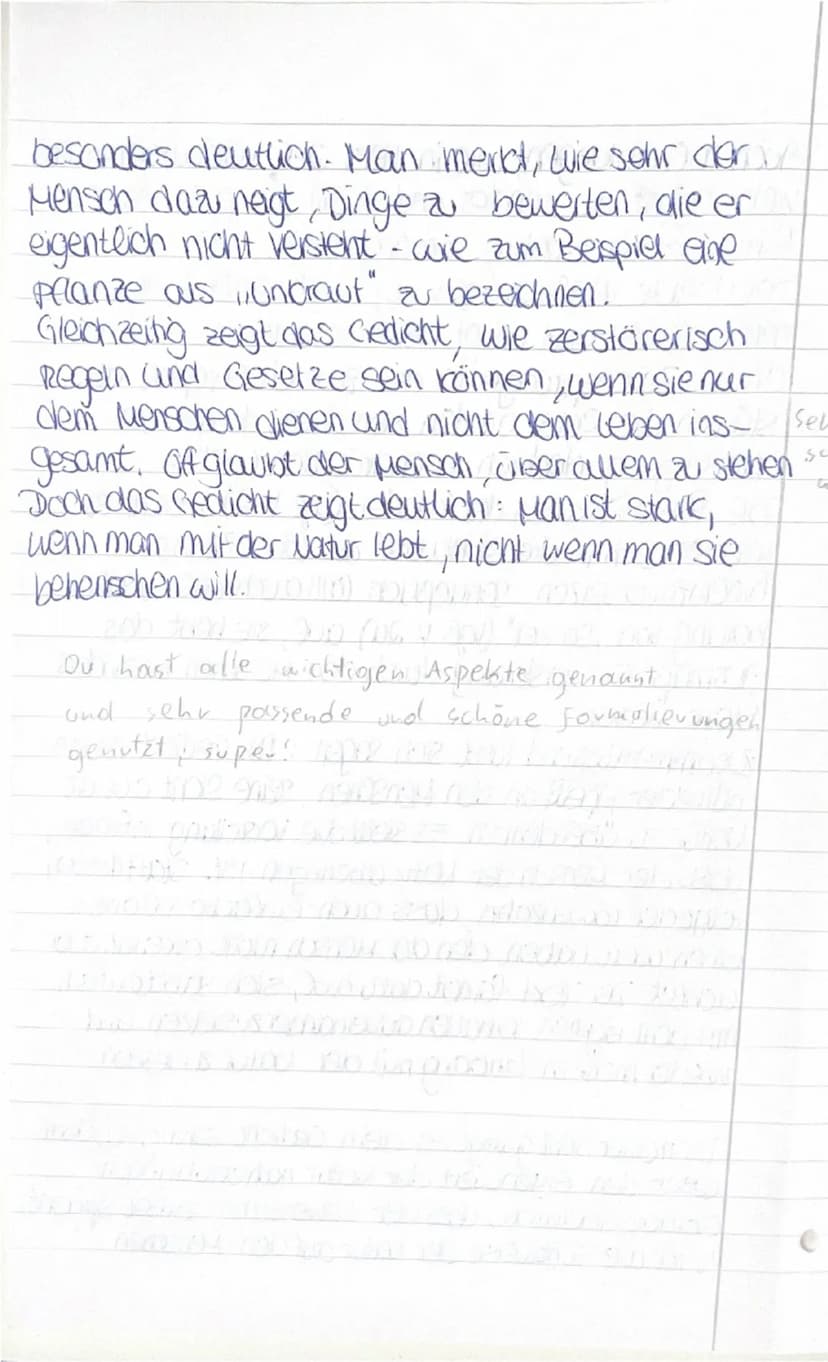 besonders deutlich. Man merkt, wie sehr der
Mensch dazu neigt, Dinge zu bewerten, die er
eigentlich nicht versteht - wie zum Beispiel eine
Pflanze als „Unkraut" zu bezeichnen.
Gleichzeitig zeigt das Gedicht, wie zerstörerisch
Regeln und Gesetze sein können, wenn sie nur
dem Menschen dienen und nicht dem Leben ins-
gesamt. Oft glaubt der Mensch, über allem zu stehen
Doch das Gedicht zeigt deutlich: Man ist stark,
wenn man mit der Natur lebt, nicht wenn man sie
beherrschen will.
Du hast alle wichtigen Aspekte genannt
und sehr passende und schöne Formulierungen
genutzt, super!